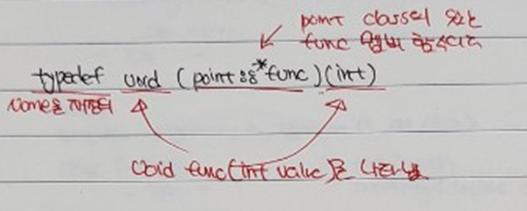 point class에 있는
func 멤버 함수다
typedef void (point::*func)(int)
name을 재정의
void func(int value)를 나타냄